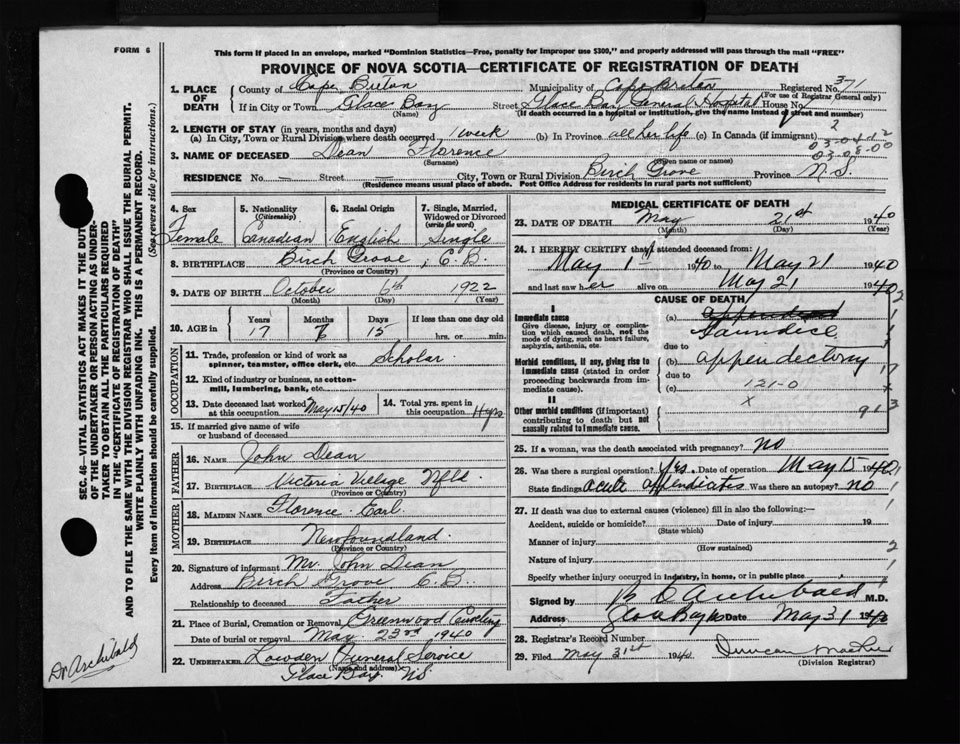 FORM 6
This form if placed in an envelope, marked "Dominion Statistics—Free, penalty for improper use $300," and properly addressed will pass through the mail "FREE"
PROVINCE OF NOVA SCOTIA—CERTIFICATE OF REGISTRATION OF DEATH
SEC. 46—VITAL STATISTICS ACT MAKES IT THE DUTY
OF THE UNDERTAKER OR PERSON ACTING AS UNDER-
TAKER TO OBTAIN ALL THE PARTICULARS REQUIRED
IN THE "CERTIFICATE OF REGISTRATION OF DEATH"
AND TO FILE THE SAME WITH THE DIVISION REGISTRAR WHO SHALL ISSUE THE BURIAL PERMIT.
WRITE PLAINLY WITH UNFADING INK. THIS IS A PERMANENT RECORD.
Every item of information should be carefully supplied. (See reverse side for instructions.)
1. PLACE OF DEATH
County of Cape Breton Municipality of Cape Breton Registered No. 371
(For use of Registrar General only)
If in City or Town Glace Bay Street Glace Bay General Hospital House No.
(Name) (If death occurred in a hospital or institution, give the name instead of street and number)
2. LENGTH OF STAY (in years, months and days)
(a) In City, Town or Rural Division where death occurred 1 week (b) In Province all her life (c) In Canada (if immigrant)
2
03-04-12
03-08-00
3. NAME OF DECEASED Dean Florence
(Surname) (Given name or names)
RESIDENCE No. — Street — City, Town or Rural Division Birch Grove Province N.S.
(Residence means usual place of abode. Post Office Address for residents in rural parts not sufficient)
4. Sex Female
5. Nationality (Citizenship) Canadean
6. Racial Origin English
7. Single, Married, Widowed or Divorced (write the word) Single
8. BIRTHPLACE Birch Grove, C.B.
(Province or Country)
9. DATE OF BIRTH October 6th 1922
(Month) (Day) (Year)
10. AGE in Years 17 Months 7 Days 15 If less than one day old
hrs. or min.
OCCUPATION
11. Trade, profession or kind of work as spinner, teamster, office clerk, etc. Scholar
12. Kind of industry or business, as cotton-mill, lumbering, bank, etc.
13. Date deceased last worked at this occupation May 15/40 14. Total yrs. spent in this occupation 11 yrs
15. If married give name of wife or husband of deceased
FATHER
16. NAME John Dean
17. BIRTHPLACE Victoria Village Nfld.
(Province or Country)
MOTHER
18. MAIDEN NAME Florence Earl
19. BIRTHPLACE Newfoundland.
(Province or Country)
20. Signature of informant Mr. John Dean
Address Birch Grove C.B.
Relationship to deceased Father
21. Place of Burial, Cremation or Removal Greenwood
Date of burial or removal May 23rd 1940
22. UNDERTAKER Lowden Funeral Service
(Name and address)
Glace Bay. N.S.
Dr Archibald
MEDICAL CERTIFICATE OF DEATH
23. DATE OF DEATH May 21st 1940
(Month) (Day) (Year)
24. I HEREBY CERTIFY that I attended deceased from:
May 1st 1940 to May 21 1940
and last saw her alive on May 21 1940
CAUSE OF DEATH
I
Immediate cause
Give disease, injury or complication which caused death, not the mode of dying, such as heart failure, asphyxia, asthenia, etc.
(a) Jaundice
due to
Morbid conditions, if any, giving rise to immediate cause (stated in order proceeding backwards from immediate cause).
(b) appendectomy
due to
(c) 121-0
II
x
Other morbid conditions (if important) contributing to death but not causally related to immediate cause.
25. If a woman, was the death associated with pregnancy? No
26. Was there a surgical operation? Yes. Date of operation May 15 1940
State findings acute appendicates Was there an autopsy? no
27. If death was due to external causes (violence) fill in also the following:—
Accident, suicide or homicide? Date of injury 19
(State which)
Manner of injury
(How sustained)
Nature of injury
Specify whether injury occurred in industry, in home, or in public place
Signed by B C Archibald M.D.
Address Glace Bay NS Date May 31 1940
28. Registrar's Record Number
29. Filed May 31st 1940 Duncan
(Division Registrar)